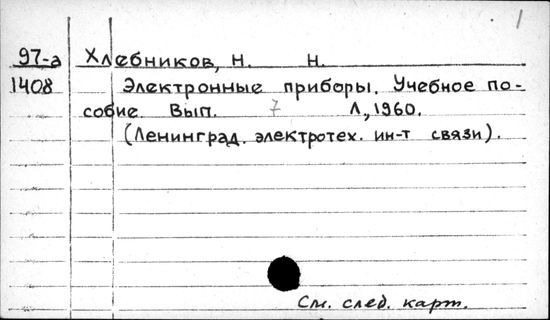 1
97-а Хлебников, Н. Н.
1408 Электронные приборы. Учебное по-
собие. Вып. 7 Л., 1960.
(Ленинград. электротех. ин-т связи).
См. след. карт.